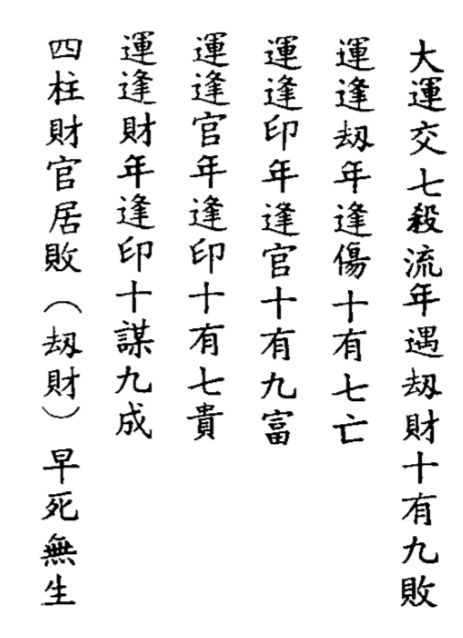 大運交七殺流年遇刼財十有九敗
運逢刼年逢傷十有七亡
運逢印年逢官十有九富
運逢官年逢印十有七貴
運逢財年逢印十謀九成
四柱財官居敗（刼財）早死無生